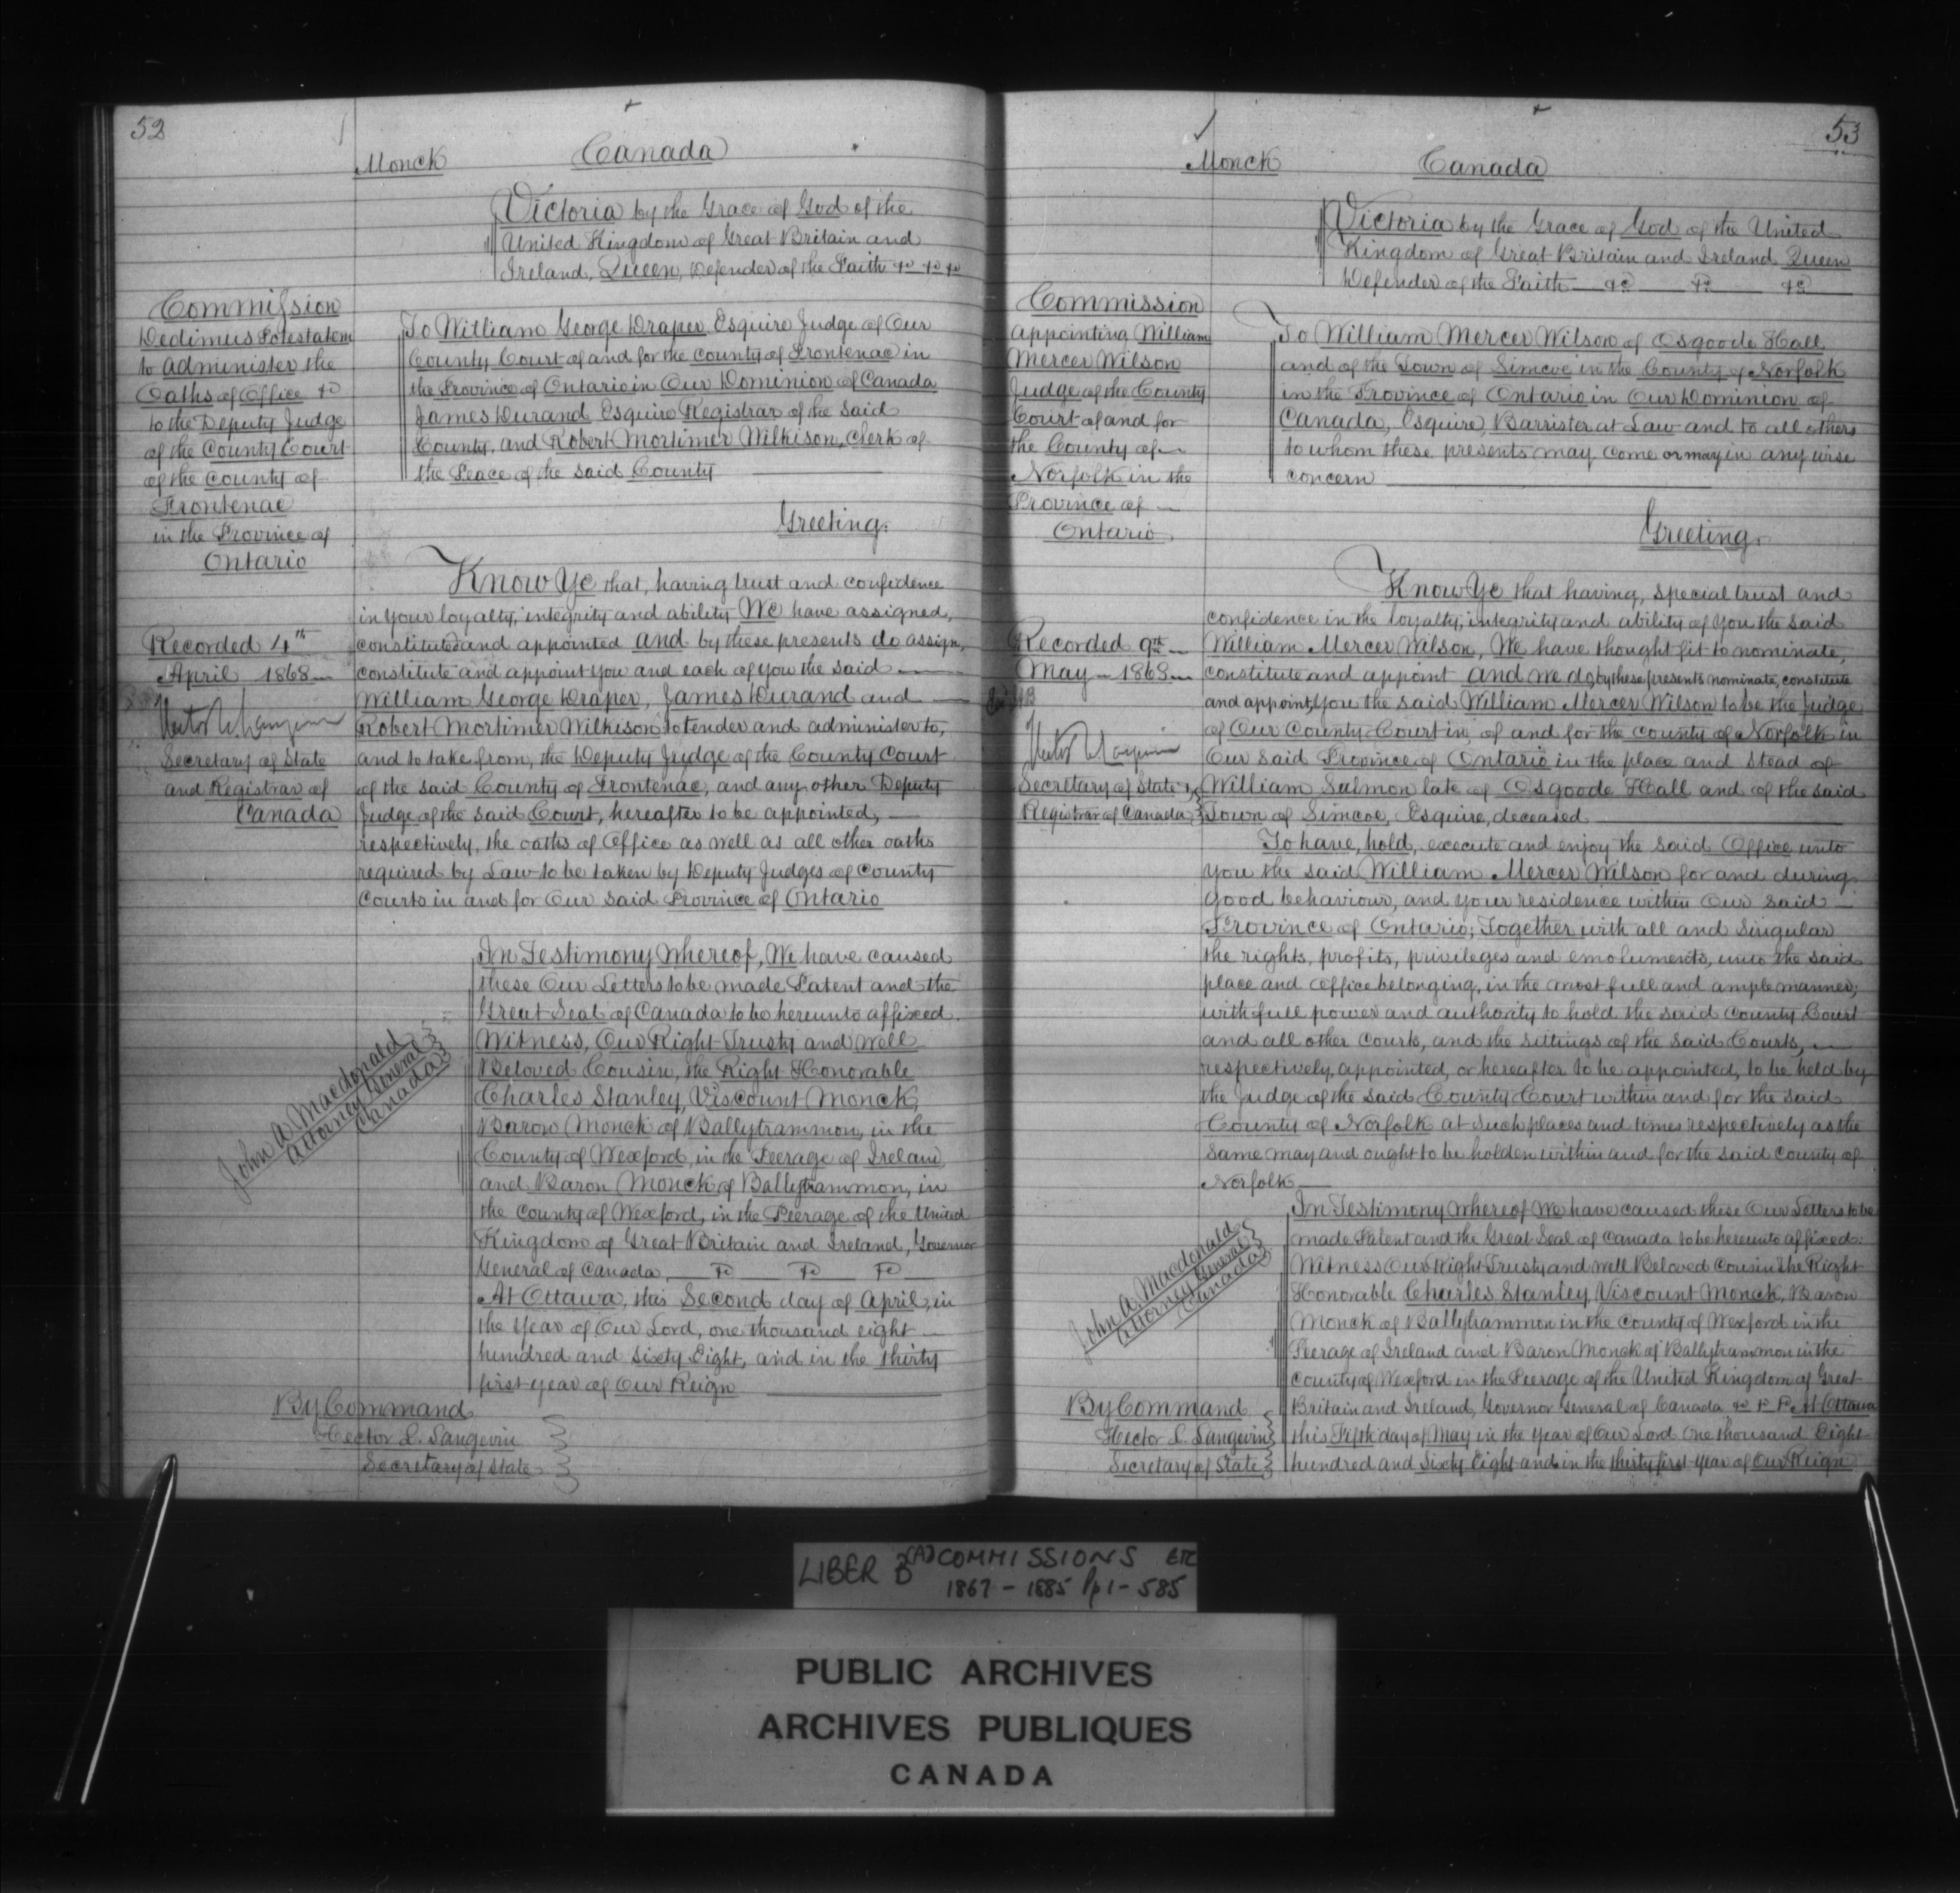 52
Monck
Canada
Victoria by the Grace of God of the
United Kingdom of Great Britain and
Ireland, Queen, Defender of the Faith &c &c &c
Commission
Dedimus Potestatem
to administer the
Oaths of Office &c
to the Deputy Judge
of the County Court
of the County of
Frontenac
in the Province of
Ontario
To William George Draper Esquire Judge of Our
County Court of and for the county of Frontenac in
the Province of Ontario in Our Dominion of Canada
James Durand Esquire Registrar of the said
County, and Robert Mortimer Wilkison, Clerk of
the Peace of the said County
Greeting.
Know Ye that, having trust and confidence
in your loyalty, integrity and ability We have assigned,
constituted and appointed and by these presents do assign,
constitute and appoint you and each of you the said
William George Draper, James Durand and
Robert Mortimer Wilkison, to tender and administer to,
and to take from, the Deputy Judge of the County Court
of the said County of Frontenac, and any other Deputy
Judge of the said Court, hereafter to be appointed,
respectively, the oaths of Office as well as all other oaths
required by Law to be taken by Deputy Judges of County
Courts in and for Our said Province of Ontario
Recorded 4th
April 1868
Secretary of State
and Registrar of
Canada
In Testimony Whereof, We have caused
these Our Letters to be made Patent and the
Great Seal of Canada to be hereunto affixed.
Witness, Our Right Trusty and Well
Beloved Cousin, the Right Honorable
Charles Stanley, Viscount Monck
Baron Monck of Ballytrammon, in the
County of Wexford, in the Peerage of Ireland
and Baron Monck of Ballytrammon, in
the County of Wexford, in the Peerage of the United
Kingdom of Great Britain and Ireland, Governor
General of Canada, &c &c &c
At Ottawa, this Second day of April, in
the Year of Our Lord, one thousand eight
hundred and sixty Eight, and in the thirty
first year of Our Reign
John A. Macdonald
Attorney General
Canada
By Command
Hector L. Langevin
Secretary of State
53
Monck
Canada
Victoria by the Grace of God of the United
Kingdom of Great Britain and Ireland Queen
Defender of the Faith &c &c &c
Commission
appointing William
Mercer Wilson
Judge of the County
Court of and for
the County of
Norfolk in the
Province of
Ontario
To William Mercer Wilson of Osgoode Hall
and of the Town of Simcoe in the County of Norfolk
in the Province of Ontario in Our Dominion of
Canada, Esquire, Barrister at Law and to all others
to whom these presents may come or may in any wise
concern
Greeting.
Know Ye that having, special trust and
confidence in the loyalty, integrity and ability of you the said
William Mercer Wilson, We have thought fit to nominate,
constitute and appoint and we do, by these presents nominate, constitute
and appoint, you the said William Mercer Wilson to be the Judge
of Our County Court in, of and for the county of Norfolk in
Our said Province of Ontario in the place and stead of
William Salmon late of Osgoode Hall and of the said
Town of Simcoe, Esquire, deceased
Recorded 9th
May 1868
Secretary of State &
Registrar of Canada
To have, hold, execute and enjoy the said Office unto
you the said William Mercer Wilson for and during
good behaviour, and your residence within Our said
Province of Ontario; Together with all and singular
the rights, profits, privileges and emoluments, unto the said
place and office belonging, in the most full and ample manner;
with full power and authority to hold the said County Court
and all other Courts, and the sittings of the said Courts,
respectively, appointed, or hereafter to be appointed, to be held by
the Judge of the said County Court within and for the said
County of Norfolk at such places and times respectively as the
same may and ought to be holden within and for the said County of
Norfolk
In Testimony Whereof We have caused these Our Letters to be
made Patent and the Great Seal of Canada to be hereunto affixed:
Witness Our Right Trusty and Well Beloved Cousin the Right
Honorable Charles Stanley Viscount Monck, Baron
Monck of Ballytrammon in the County of Wexford in the
Peerage of Ireland and Baron Monck of Ballytrammon in the
County of Wexford in the Peerage of the United Kingdom of Great
Britain and Ireland, Governor General of Canada &c &c &c At Ottawa
this Fifth day of May in the Year of Our Lord One thousand Eight
hundred and Sixty Eight and in the thirty first year of Our Reign
John A. Macdonald
Attorney General
Canada
By Command
Hector L. Langevin
Secretary of State
LIBER B (A) COMMISSIONS ETC
1867 - 1885 pp 1 - 585
PUBLIC ARCHIVES
ARCHIVES PUBLIQUES
CANADA